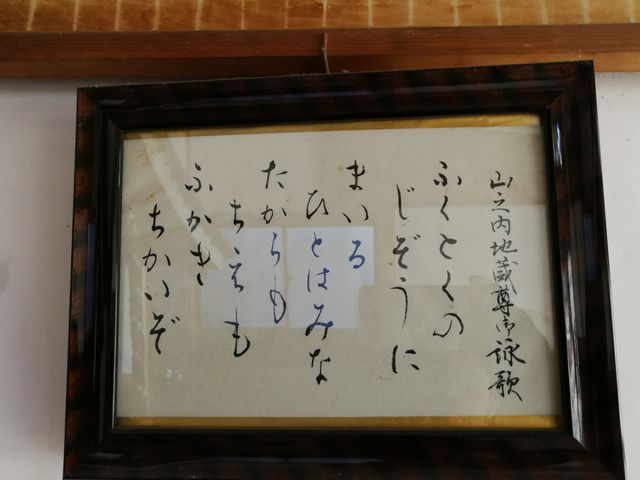 山之内地蔵尊御詠歌
ふくとくの
じぞうに
まいる
ひとはみな
たからも
ちゑも
ふかき
ちかいぞ